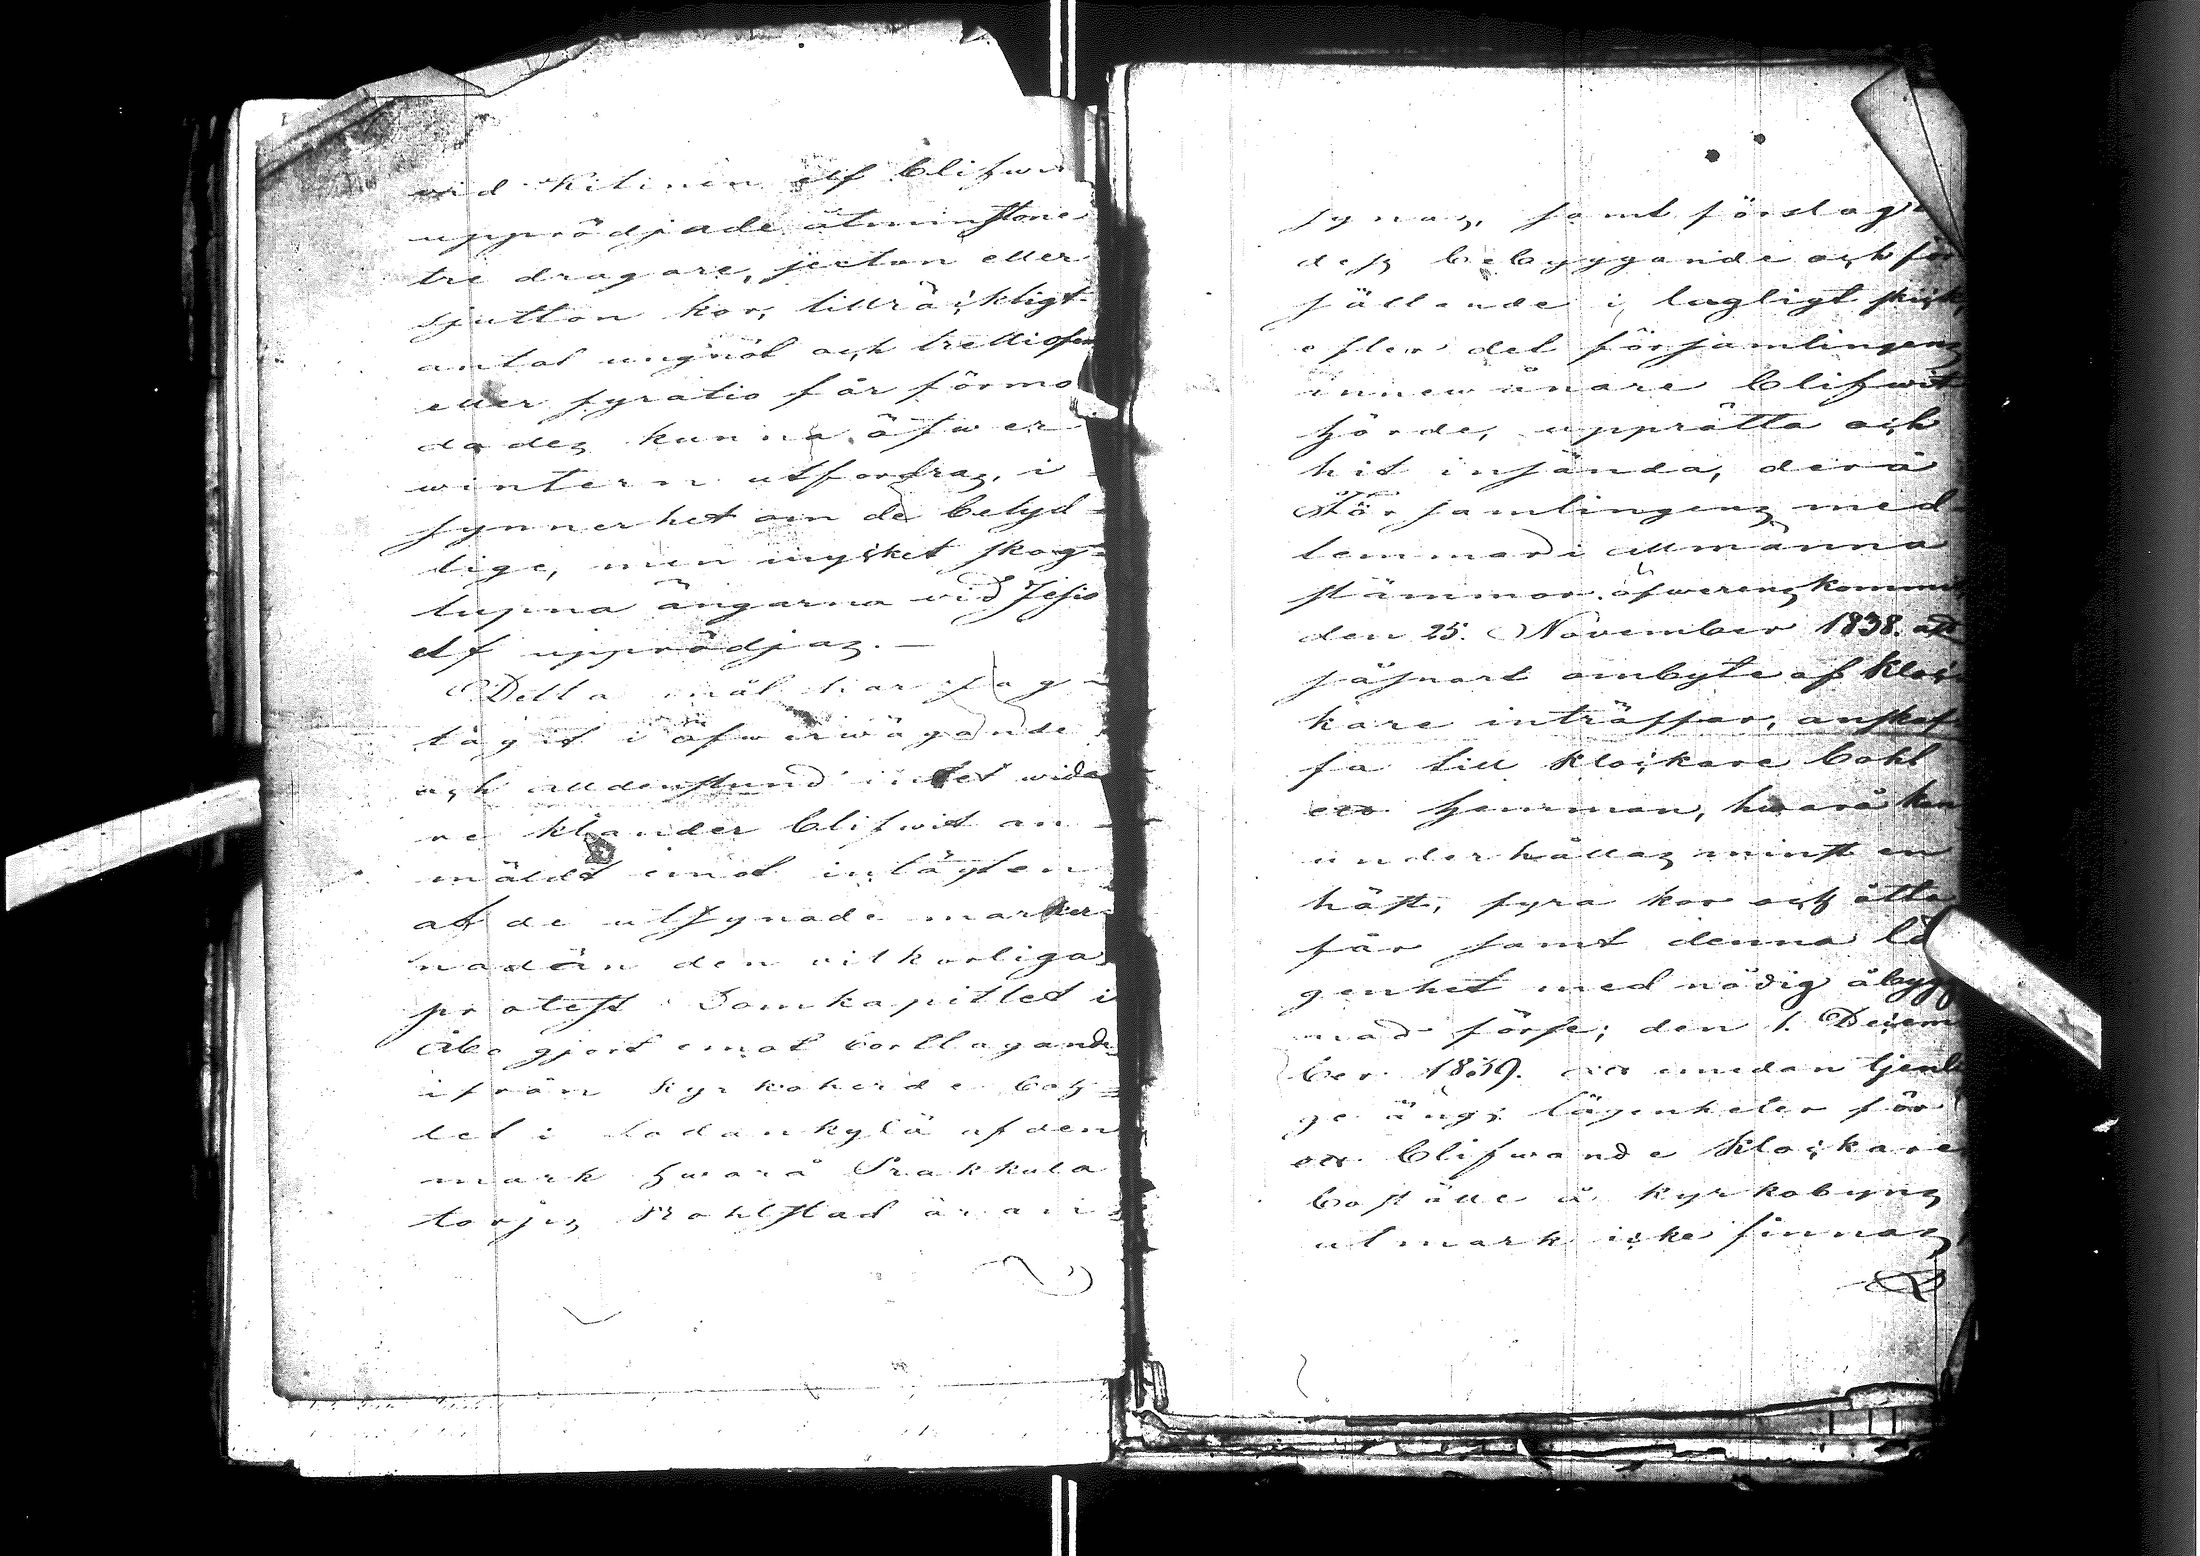 vid Kitinen elf blifwit
upprödjade åtminstone
tre dragare, sexton eller
sjutton kor, tillräckligt
antal ungnöt och trettiofem
eller fyratio får förmo
dades kunna öfwer
wintern utfordras, i
synnerhet om de betyd-
lige, men mycket skog-
lupna ängarna vid Jesiö
elf upprödjas. —
Detta mål har jag
tagit i öfwerwägande
och alldenstund intet wida
re klander blifwit an-
mäldt emot intägten
af de utsynade marker-
na än den vilkorliga
protest Domkapitlet i
Åbo gjort emot borttagande
ifrån kyrkoherde bos-
let i Sodankylä af den
mark hwarå Prakkula
torps Bohlstad är an
synas, samt förslag till
dess bebyggande och för
sättande i lagligt skick,
efter det församlingens
innewånare blifwit
hörde, upprätta och
hit insända, derå
Församlingens med-
lemmar i allmänna
stämmor öfwerenskommit
den 25. November 1838. att
såsnart ombyte af Kloc-
kare inträffar, anskaf-
fa till klockare bohl
ett hemman, hwarå kan
underhållas minst en
häst, fyra kor och åtta
får samt denna lä
genhet med nödig åbygg
nad förse; den 1. Decem
ber 1839. att emedan tjenli
ge ängs lägenheter för
ett blifwande klockare
boställe å kyrkobyns
utmark icke finnas,